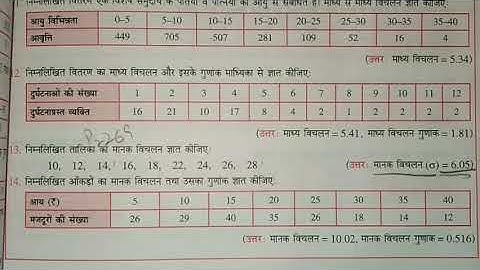 निम्नलिखित वितरण एक विशेष समुदाय के पतियों व पत्नियों की आयु से संबंधित है। माध्य से माध्य विचलन ज्ञात कीजिए:
आयु विभिन्नता 0–5 5–10 10–15 15–20 20–25 25–30 30–35 35–40
आवृत्ति 449 705 507 281 109 52 16 4
(उत्तर: माध्य विचलन = 5.34)
2 निम्नलिखित वितरण का माध्य विचलन और इसके गुणांक माध्यिका से ज्ञात कीजिए:
दुर्घटनाओं की संख्या 1 2 3 4 5 6 7 8 9 10 11 12
दुर्घटनाग्रस्त व्यक्ति 16 21 10 17 8 4 2 1 2 2 2 2
(उत्तर: माध्य विचलन = 5.41, माध्य विचलन गुणांक = 1.81)
13. निम्नलिखित तालिका का मानक विचलन ज्ञात कीजिए:
10, 12, 14, 16, 18, 22, 24, 26, 28
(उत्तर: मानक विचलन (σ) = 6.05)
14. निम्नलिखित आँकड़ों का मानक विचलन तथा उसका गुणांक ज्ञात कीजिए:
आय (₹) 5 10 15 20 25 30 35 40
मजदूरों की संख्या 26 29 40 35 26 18 14 12
(उत्तर: मानक विचलन = 10.02, मानक विचलन गुणांक = 0.516)